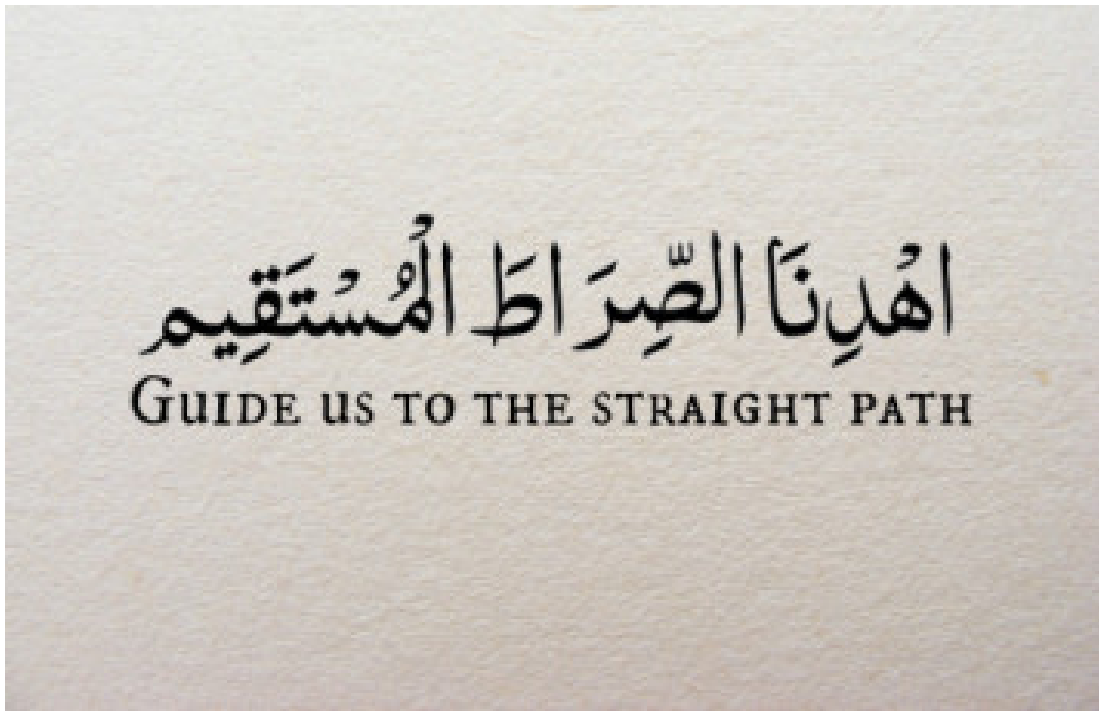 اهْدِنَا الصِّرَاطَ الْمُسْتَقِيم
Guide us to the straight path